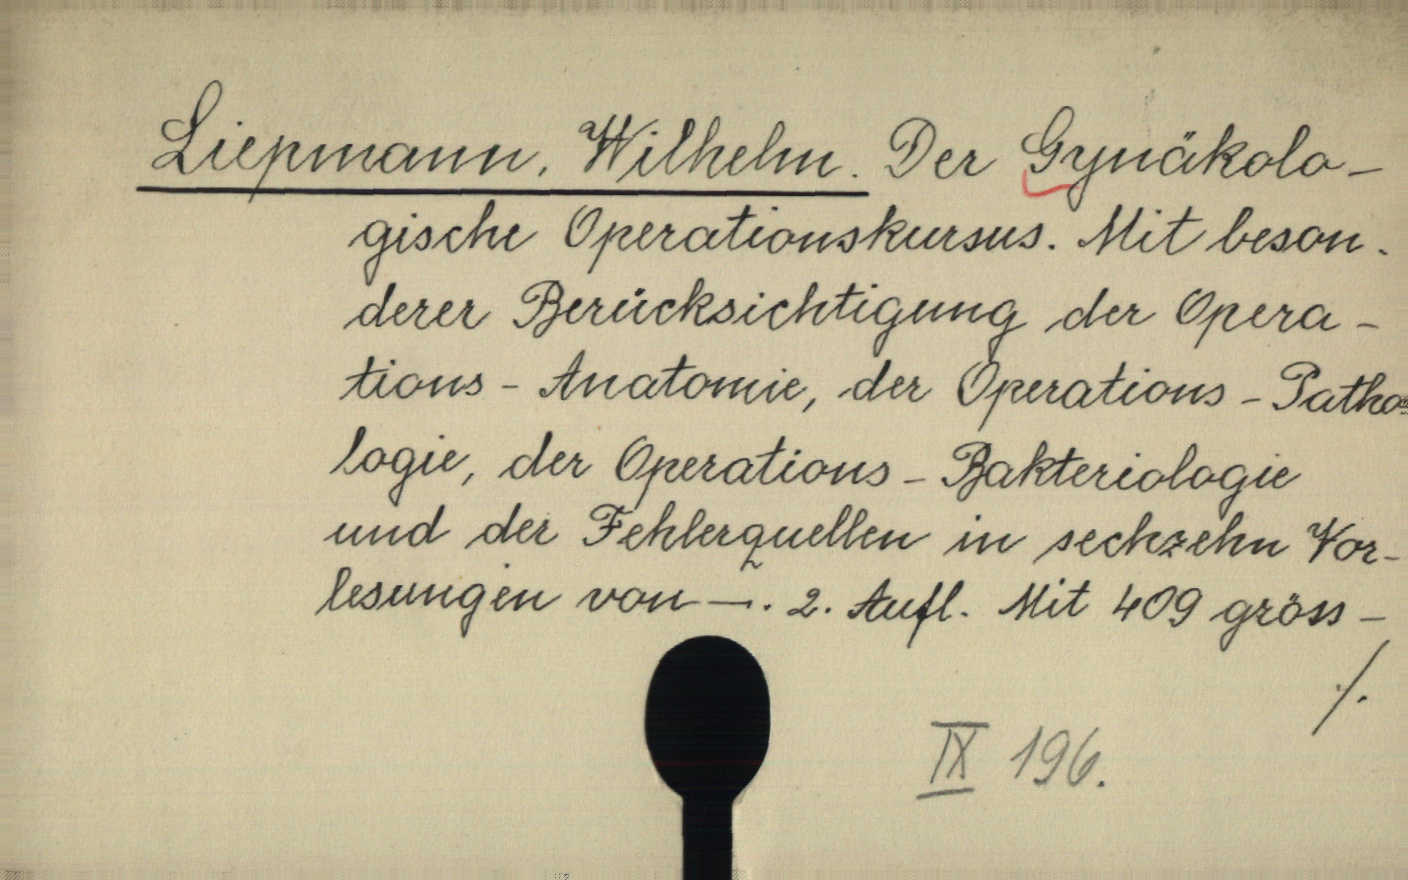 Liepmann, Wilhelm. Der Gynäkolo-
gische Operationskursus. Mit beson-
derer Berücksichtigung der Opera-
tions-Anatomie, der Operations-Patho-
logie, der Operations-Bakteriologie
und der Fehlerquellen in sechzehn Vor-
lesungen von —. 2. Aufl. Mit 409 gröss-
./.
IX 196.